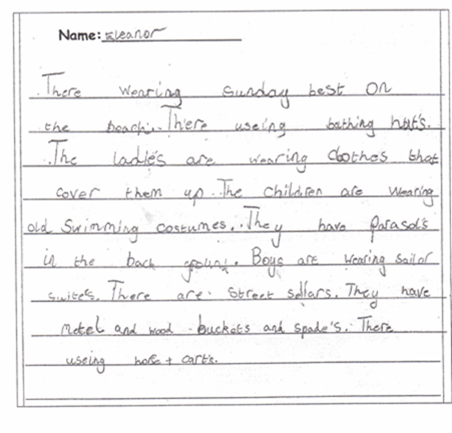 Name: Eleanor
There Wearing Sunday best On
the beach. There useing bathing hut's.
The ladie's are wearing clothes that
cover them up. The children are wearing
old Swimming costumes. They have Parasol's
in the back ground. Boys are wearing Sailor
suite's. There are Street sellars. They have
Metel and wood buckets and spade's. There
useing horse + cart's.